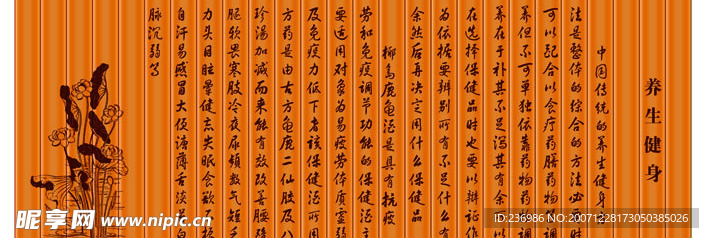 养生健身
中国传统的养生健身
法是整体的综合的方法必
可以配合以食疗药膳药物
养但不可单独依靠药物药
养在于补其不足泻其有余
在选择保健品时也要以辩证作
为依据要辨别所有不足什么有
余然后再决定用什么保健品
椰岛鹿龟酒是具有抗疲
劳和免疫调节功能的保健酒主
要适用对象为易疲劳体质虚弱
及免疫力低下者该保健酒所用
方药是由古方龟鹿二仙胶及八
珍汤加减而来能有效改善腰膝
腿软畏寒肢冷夜尿频数气短
力头目眩晕健忘失眠食欲
自汗易感冒大便溏薄舌淡
脉沉弱等
昵享网 www.nipic.cn
ID:236986 NO:20071228173050385026